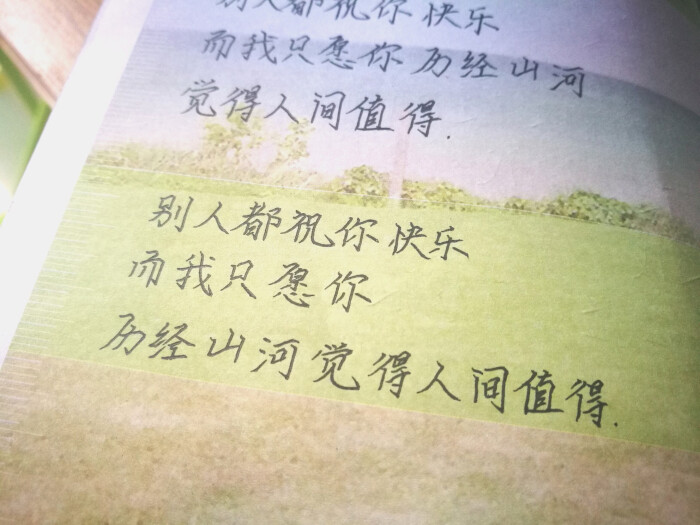 别人都祝你快乐
而我只愿你历经山河
觉得人间值得.
别人都祝你快乐
而我只愿你
历经山河觉得人间值得.